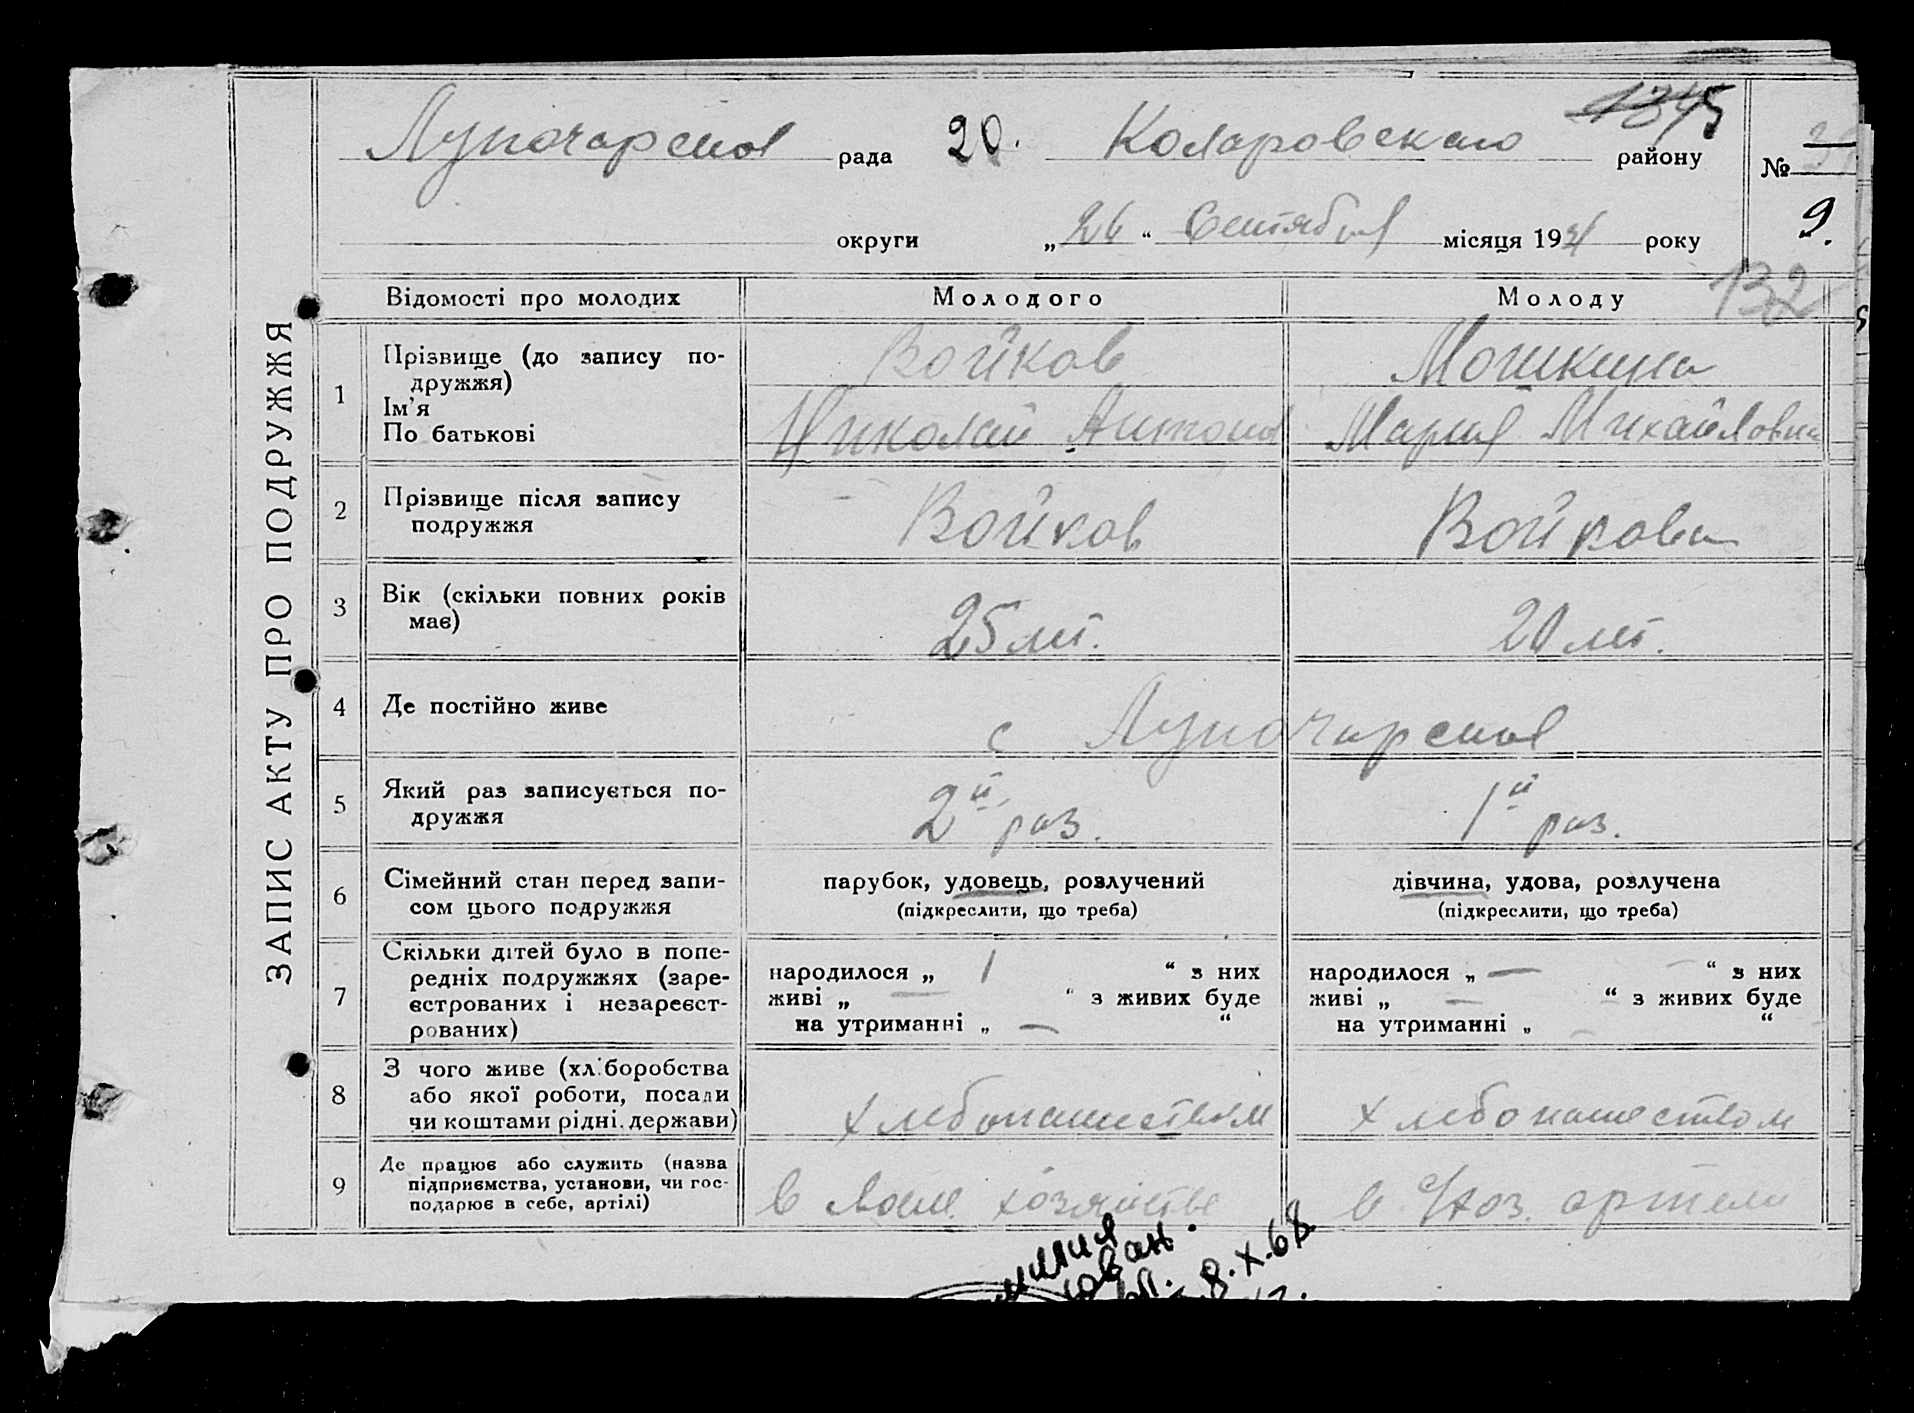 1345
Луначарская рада 20. Коларовскаго району №
округи „26“ Сентября місяця 1931 року 9.
132
ЗАПИС АКТУ ПРО ПОДРУЖЖЯ
Відомості про молодих Молодого Молоду
1 Прізвище (до запису по-
дружжя)
Ім’я
По батькові
Войков Мошкина
Николай Антонов Мария Михайловна
2 Прізвище після запису
подружжя
Войков Войкова
3 Вік (скільки повних років
має)
25 лет. 20 лет.
4 Де постійно живе
с Луначарская
5 Який раз записується по-
дружжя
2й раз. 1й раз.
6 Сімейний стан перед запи-
сом цього подружжя
парубок, удовець, розлучений
(підкреслити, що треба)
дівчина, удова, розлучена
(підкреслити, що треба)
7 Скільки дітей було в попе-
редніх подружжях (заре-
єстрованих і незареєст-
рованих)
народилося „ 1 “ з них
живі „ — “ з живих буде
на утриманні „ — “
народилося „ — “ з них
живі „ — “ з живих буде
на утриманні „ — “
8 З чого живе (хліборобства
або якої роботи, посади
чи коштами рідні, держави)
хлебопашеством хлебопашеством
9 Де працює або служить (назва
підприємства, установи, чи гос-
подарює в себе, артілі)
в своем хозяйстве в с/хоз. артели
8.X.68.